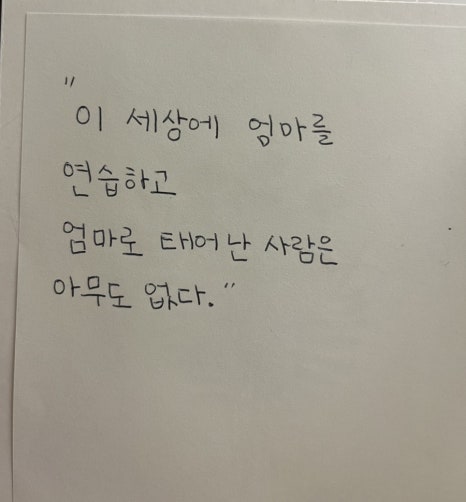 "
이 세상에 엄마를
연습하고
엄마로 태어난 사람은
아무도 없다."